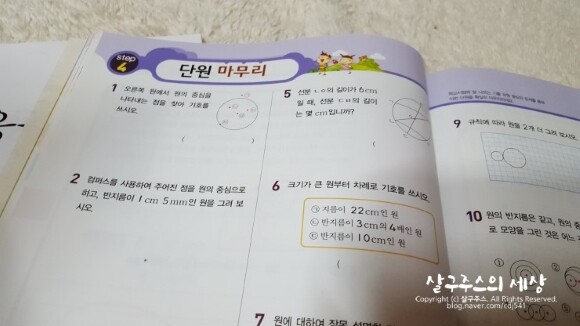 step
4
단원 마무리
1 오른쪽 원에서 원의 중심을
나타내는 점을 찾아 기호를
쓰시오.
(
2 컴퍼스를 사용하여 주어진 점을 원의 중심으로
하고, 반지름이 1cm 5mm인 원을 그려 보
시오.
5 선분 ㄴㅇ의 길이가 6cm
일 때, 선분 ㄷㅁ의 길이
는 몇 cm입니까?
( )
6 크기가 큰 원부터 차례로 기호를 쓰시오.
㉠ 지름이 22cm인 원
㉡ 반지름이 3cm의 4배인 원
㉢ 반지름이 10cm인 원
(
7 원에 대하여 잘못 설명한
9 규칙에 따라 원을 2개 더 그려 보시오.
10 원의 반지름은 같고, 원의 중
로 모양을 그린 것은 어느
①
③
살구주스의 세상
Copyright (c) 살구주스. All Rights Reserved.
blog.naver.com/cdj541